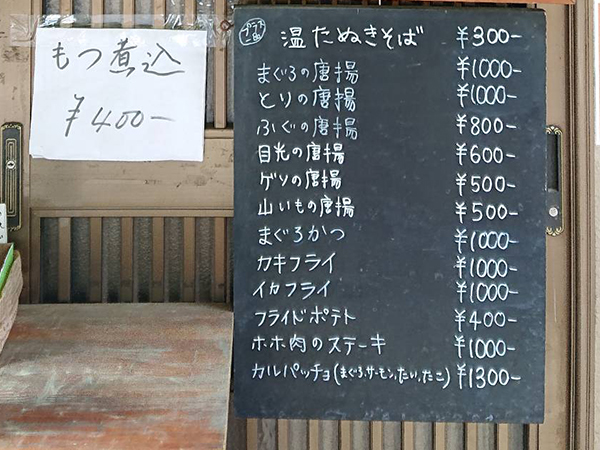 もつ煮込
¥400-
プラス一品
温たぬきそば ¥300-
まぐろの唐揚 ¥1000-
とりの唐揚 ¥1000-
ふぐの唐揚 ¥800-
目光の唐揚 ¥600-
ゲソの唐揚 ¥500-
山いもの唐揚 ¥500-
まぐろかつ ¥1000-
カキフライ ¥1000-
イカフライ ¥1000-
フライドポテト ¥400-
ホホ肉のステーキ ¥1000-
カルパッチョ(まぐろ、サーモン、たい、たこ) ¥1300-